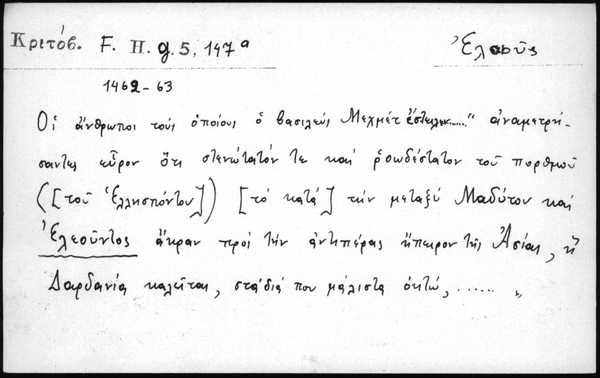 Κριτόβ. F. H. g. 5, 147ᵃ
Ἐλαοῦς
1462-63
Οἱ ἄνθρωποι τοὺς ὁποίους ὁ βασιλεὺς Μεχμέτ ἔστειλεν......" ἀναμετρή-
σαντες εὗρον ὅτι στενώτατόν τε καὶ ῥοωδέστατον τοῦ πορθμοῦ
([τοῦ Ἑλλησπόντου]) [τὸ κατά] τὴν μεταξὺ Μαδύτου καὶ
Ἐλεοῦντος ἄκραν πρὸς τὴν ἀντιπέρας ἤπειρον τῆς Ἀσίας, ἣ
Δαρδανία καλεῖται, στάδιά που μάλιστα ὀκτώ, ...... „